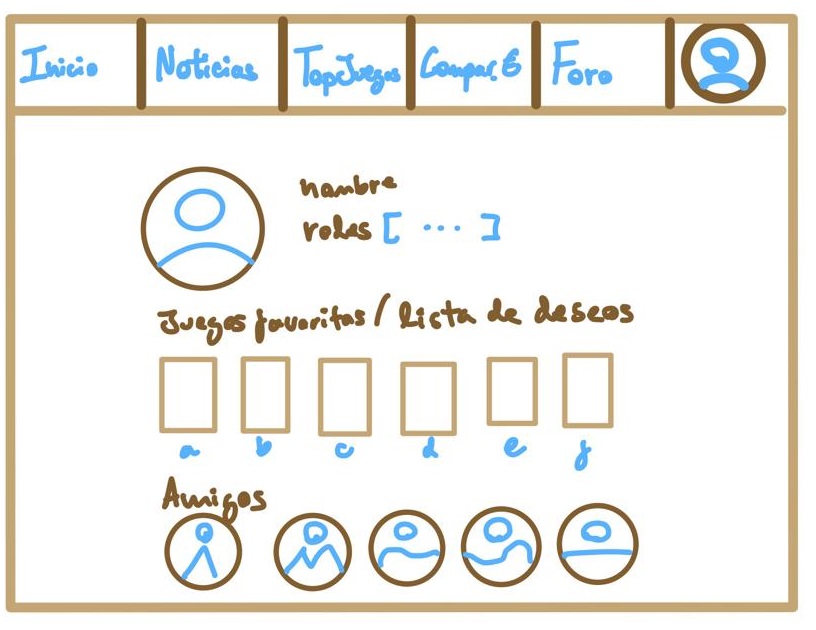 Inicio
Noticias
TopJuegos
Foro
nombre
roles [ ... ]
Juegos favoritos / lista de deseos
a b c d e f
Amigos